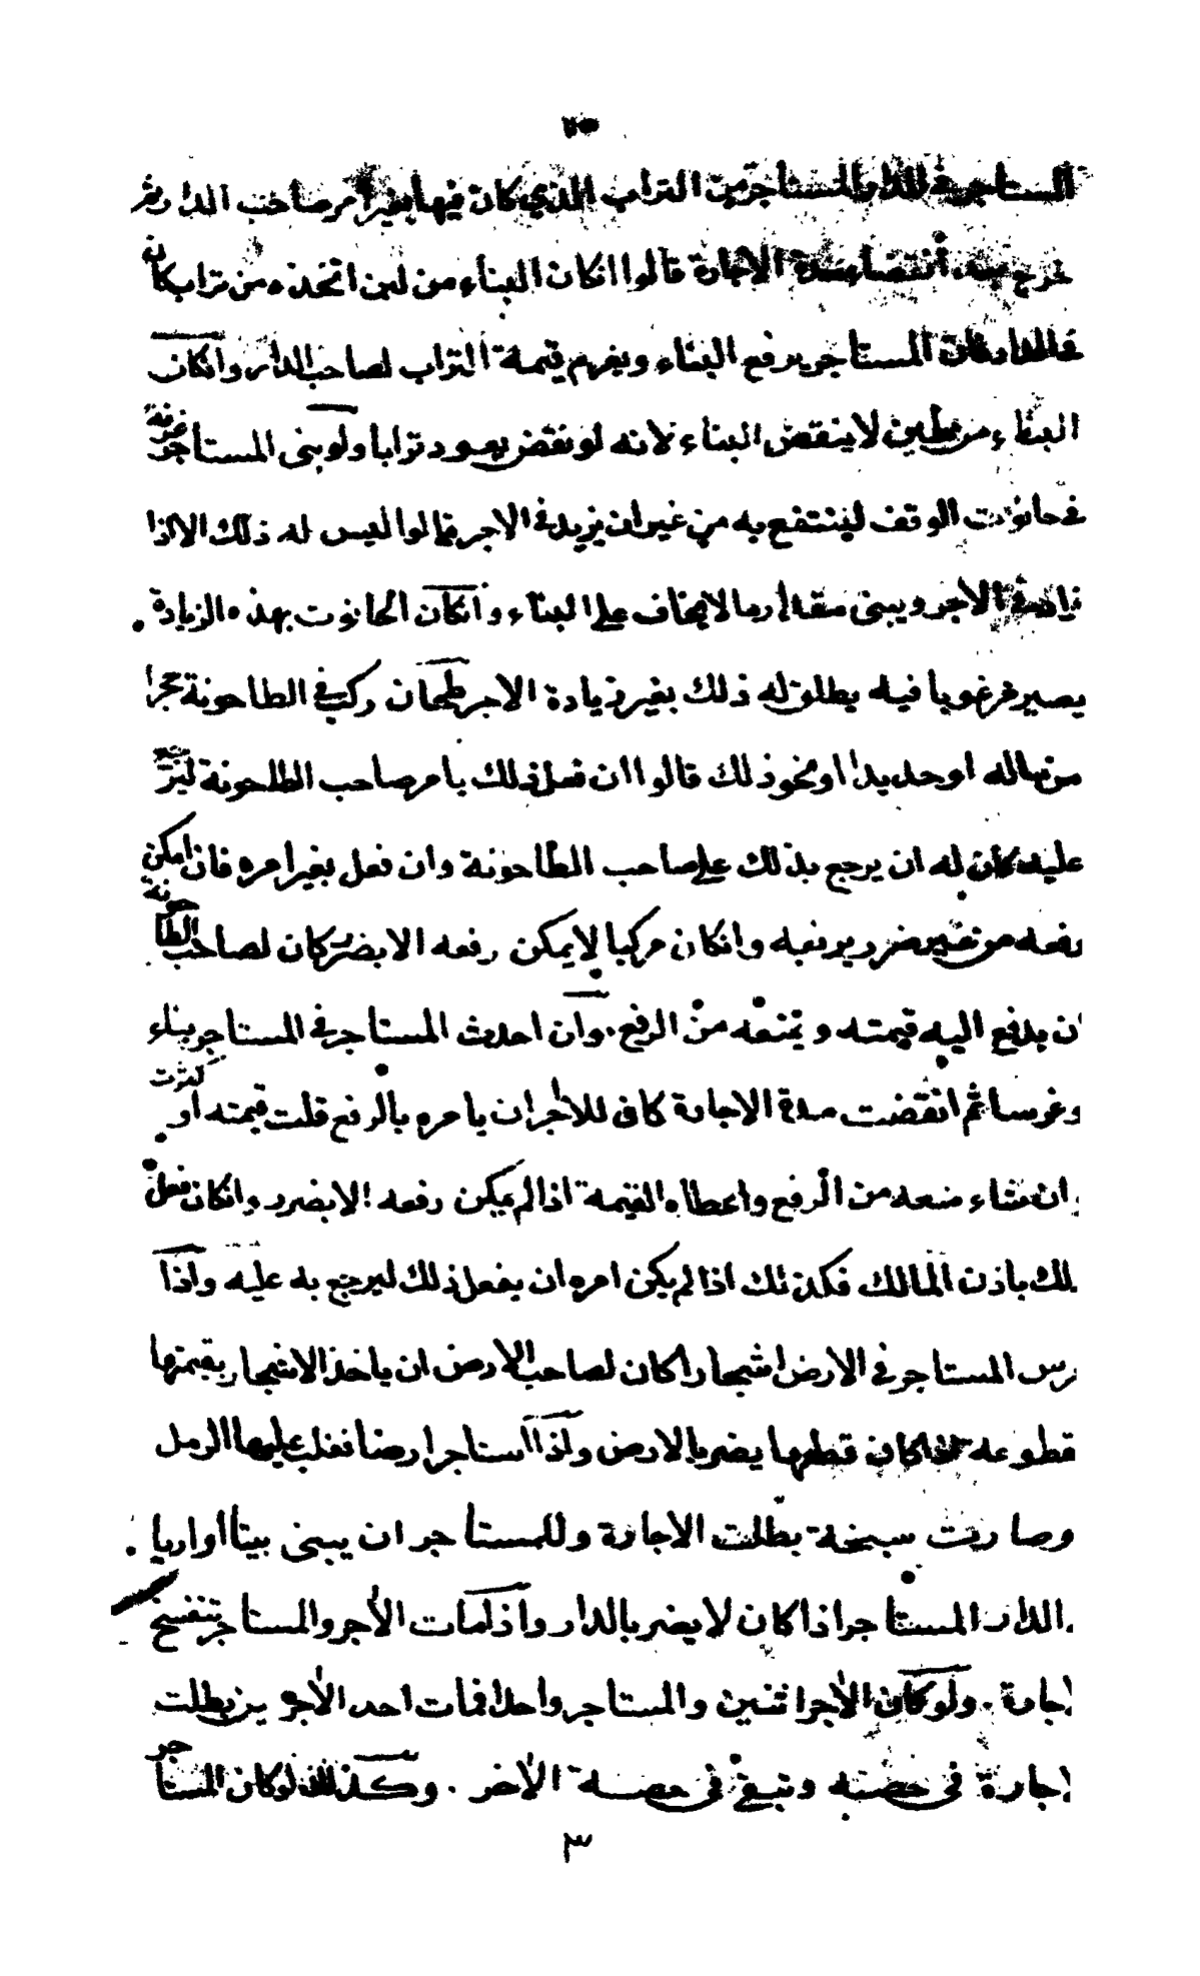 المستاجر في الدار المستاجرة من التراب الذي كان فيها بغير امر صاحب الدار ثم
خرج بعد انقضاء مدة الاجارة قالوا انكان البناء من لبن اتخذه من تراب كان
في الدار فان المستاجر يرفع البناء ويغرم قيمة التراب لصاحب الدار وانكان
البناء من طين لا ينقض البناء لانه لو نقض يعود ترابا ولو بنى المستاجر غرفة
في حانوت الوقف لينتفع به من غير ان يزيد في الاجر قالوا ليس له ذلك الا اذا
زاد في الاجر ويبنى مقدار ما لا يخاف على البناء وانكان الحانوت بهذه الزيادة
يصير مرغوبا فيه يطلق له ذلك بغير زيادة الاجر طحان ركب في الطاحونة حجرا
من ماله او حديدا او نحو ذلك قالوا ان فعل ذلك بامر صاحب الطاحونة ليرجع
عليه كان له ان يرجع بذلك على صاحب الطاحونة وان فعل بغير امره فان امكن
رفعه من غير ضرر يرفعه وانكان مركبا لا يمكن رفعه الا بضرر كان لصاحب الطاحونة
ان يدفع اليه قيمته ويمنعه من الرفع. وان احدث المستاجر في المستاجر بناء
وغرسا ثم انقضت مدة الاجارة كان للاجر ان يامره بالرفع قلت قيمته او كثرت
وان شاء منعه من الرفع واعطاه القيمة اذا لم يمكن رفعه الا بضرر وانكان فعل
ذلك باذن المالك فكذلك اذا لم يكن امره ان يفعل ذلك ليرجع به عليه واذا
غرس المستاجر في الارض اشجارا كان لصاحب الارض ان ياخذ الاشجار بقيمتها
مقطوعه اذا كان قطعها يضر بالارض واذا استاجر ارضا فغلب عليها الرمل
وصارت سبخة بطلت الاجارة وللمستاجر ان يبنى بيتا اواريا
في الدار المستاجر اذا كان لا يضر بالدار واذا مات الاجر والمستاجر تنفسخ
الاجارة. ولو كان الاجر اثنين والمستاجر واحدا فمات احد الاجرين بطلت
الاجارة في حصته وتبقى في حصة الاخر. وكذلك لو كان المستاجر
٣